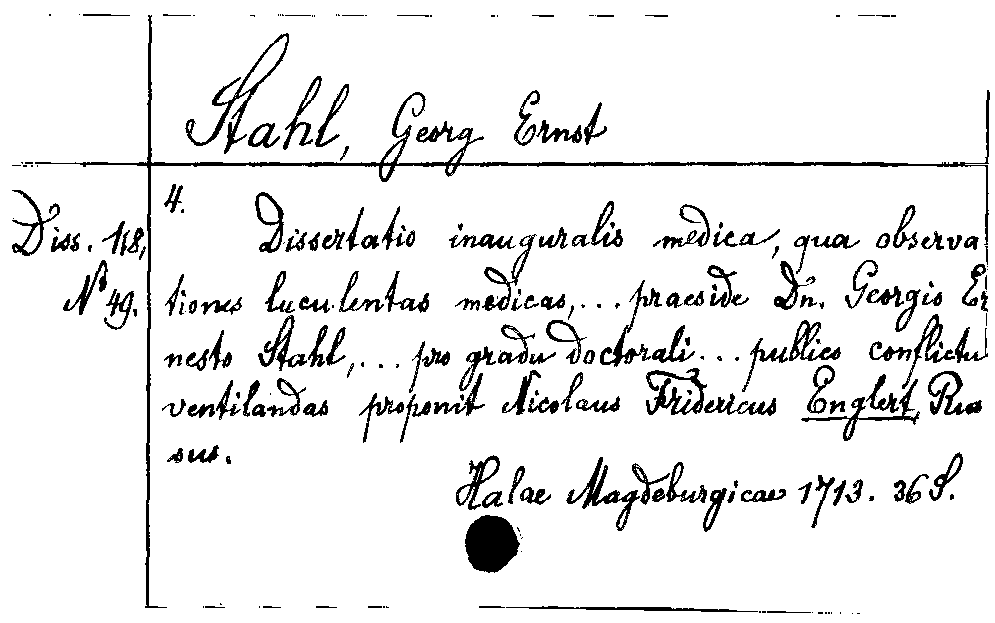 Stahl, Georg Ernst
4.
Diss. 118,
No 49.
Dissertatio inauguralis medica, qua observa
tiones luculentas medicas,... praeside Dn. Georgio Er
nesto Stahl,... pro gradu doctorali... publico conflictu
ventilandas proponit Nicolaus Fridericus Englert, Rus
sus.
Halae Magdeburgicae 1713. 36 S.